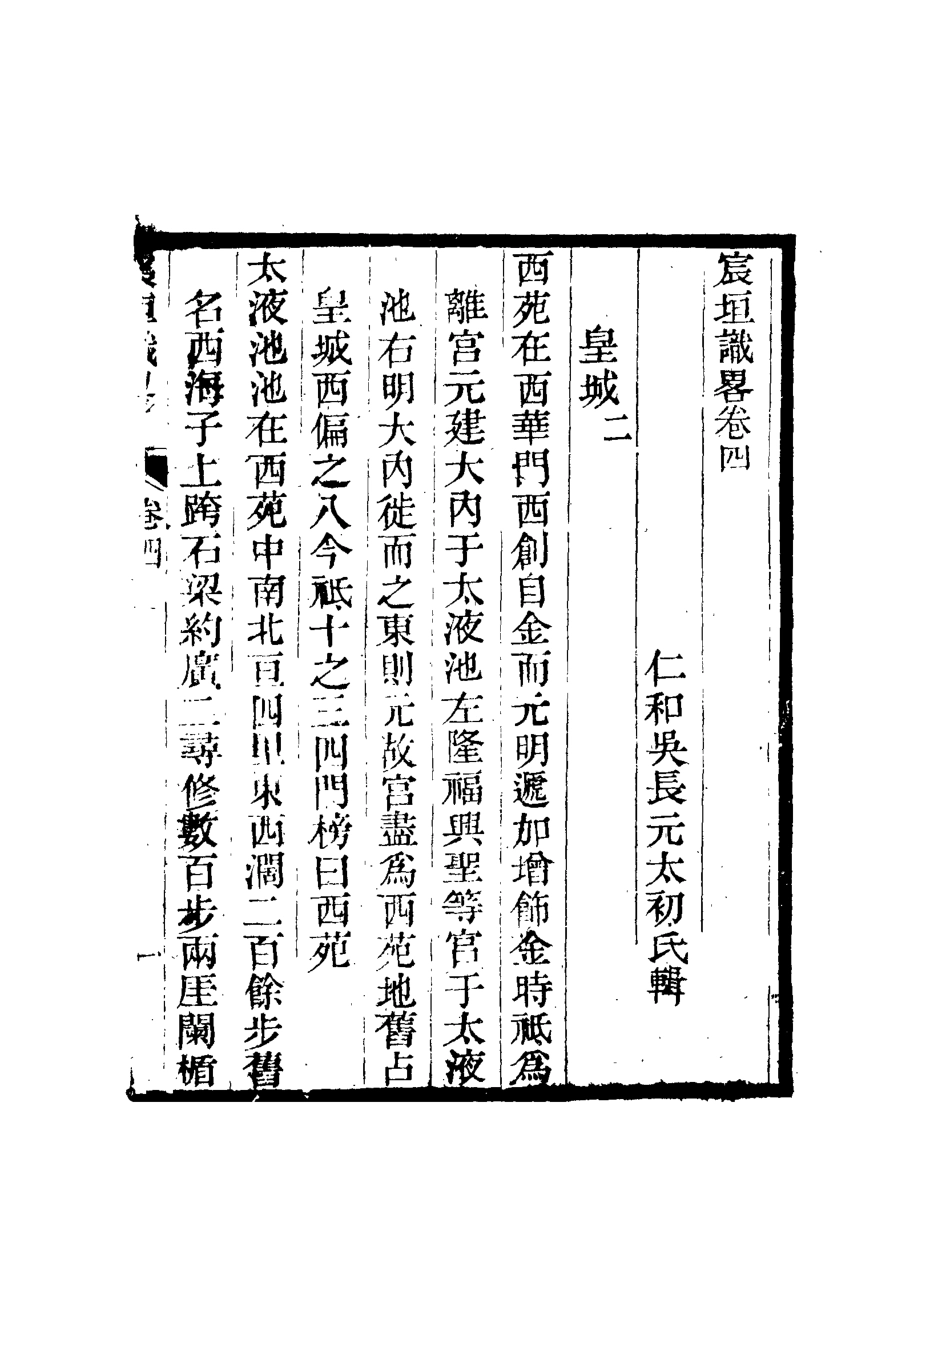 宸垣識畧卷四
仁和吳長元太初氏輯
皇城二
西苑在西華門西創自金而元明遞加增飾金時祗爲
離宮元建大內于太液池左隆福興聖等宮于太液
池右明大內徙而之東則元故宮盡爲西苑地舊占
皇城西偏之八今祗十之三四門榜曰西苑
太液池池在西苑中南北亘四里東西濶二百餘步舊
名西海子上跨石梁約廣二尋修數百步兩厓闌楯
宸垣識畧 卷四 一